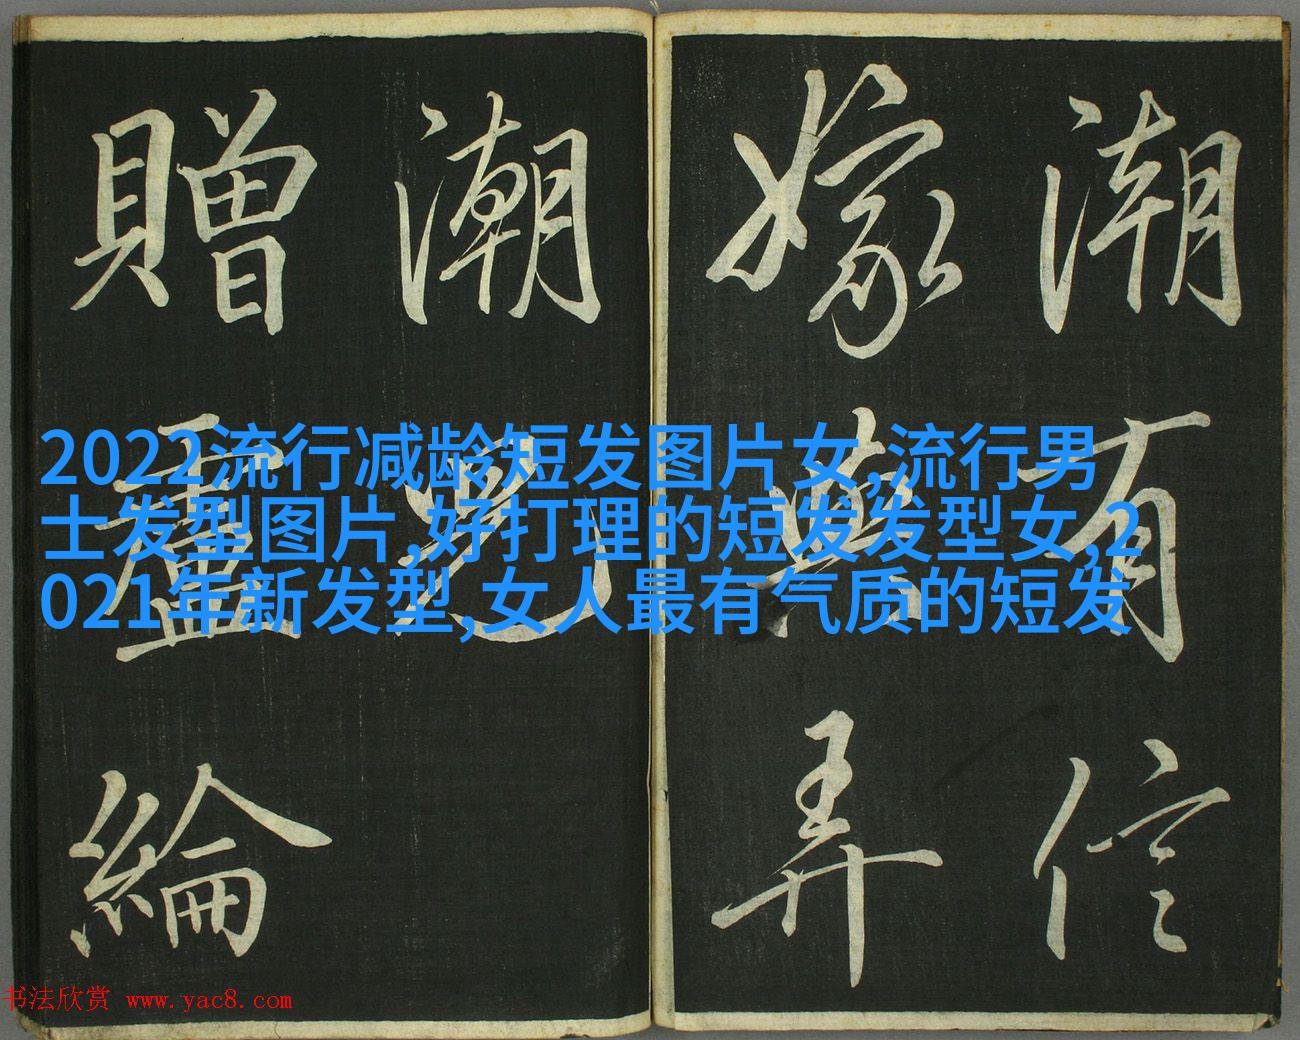 潮有信
嫁與弄
潮兒
贈盧綸
2022流行减龄短发图片女,流行男
士发型图片,好打理的短发发型女,2
021年新发型,女人最有气质的短发
书法欣赏 www.yac8.com